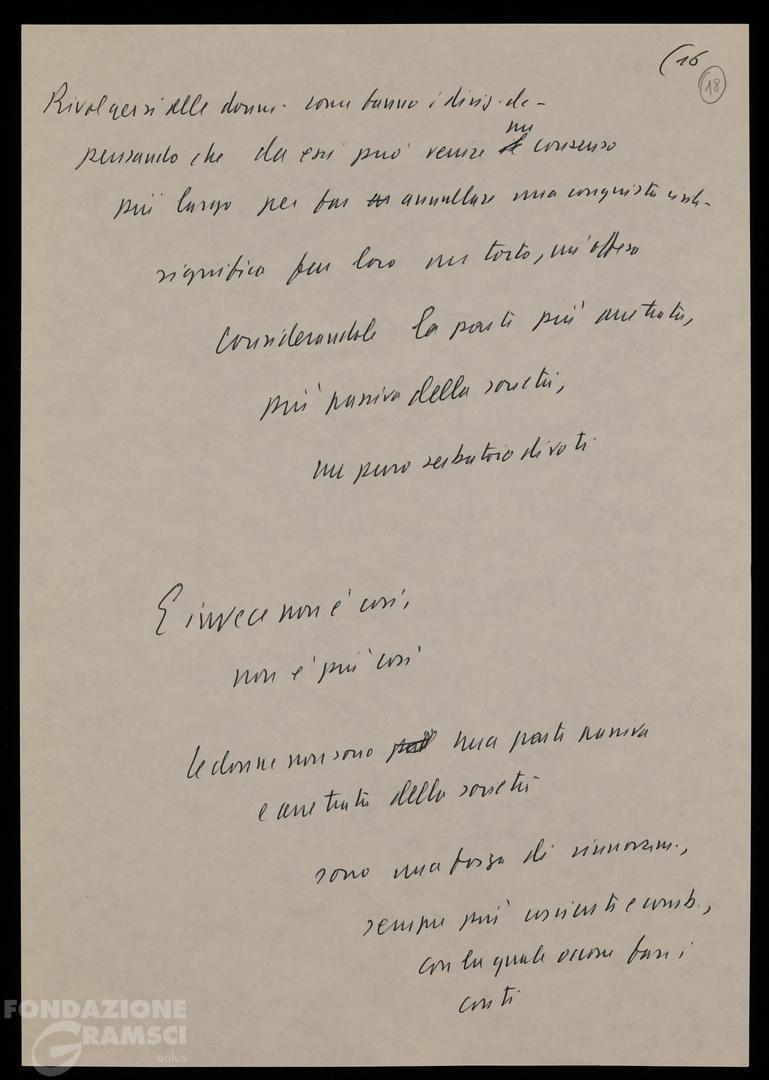 (16
18
Rivolgersi alle donne come fanno i dirig. dc -
pensando che da esse può venire un consenso
più largo per far annullare una conquista civile
significa fare loro un torto, un'offesa
considerandole la parte più arretrata,
più passiva della società,
un puro serbatoio di voti
E invece non è così,
non è più così
le donne non sono una parte passiva
e arretrata della società
sono una forza di rinnovam.,
sempre più cosciente e comb.,
con la quale occorre fare i
conti
FONDAZIONE
GRAMSCI
onlus